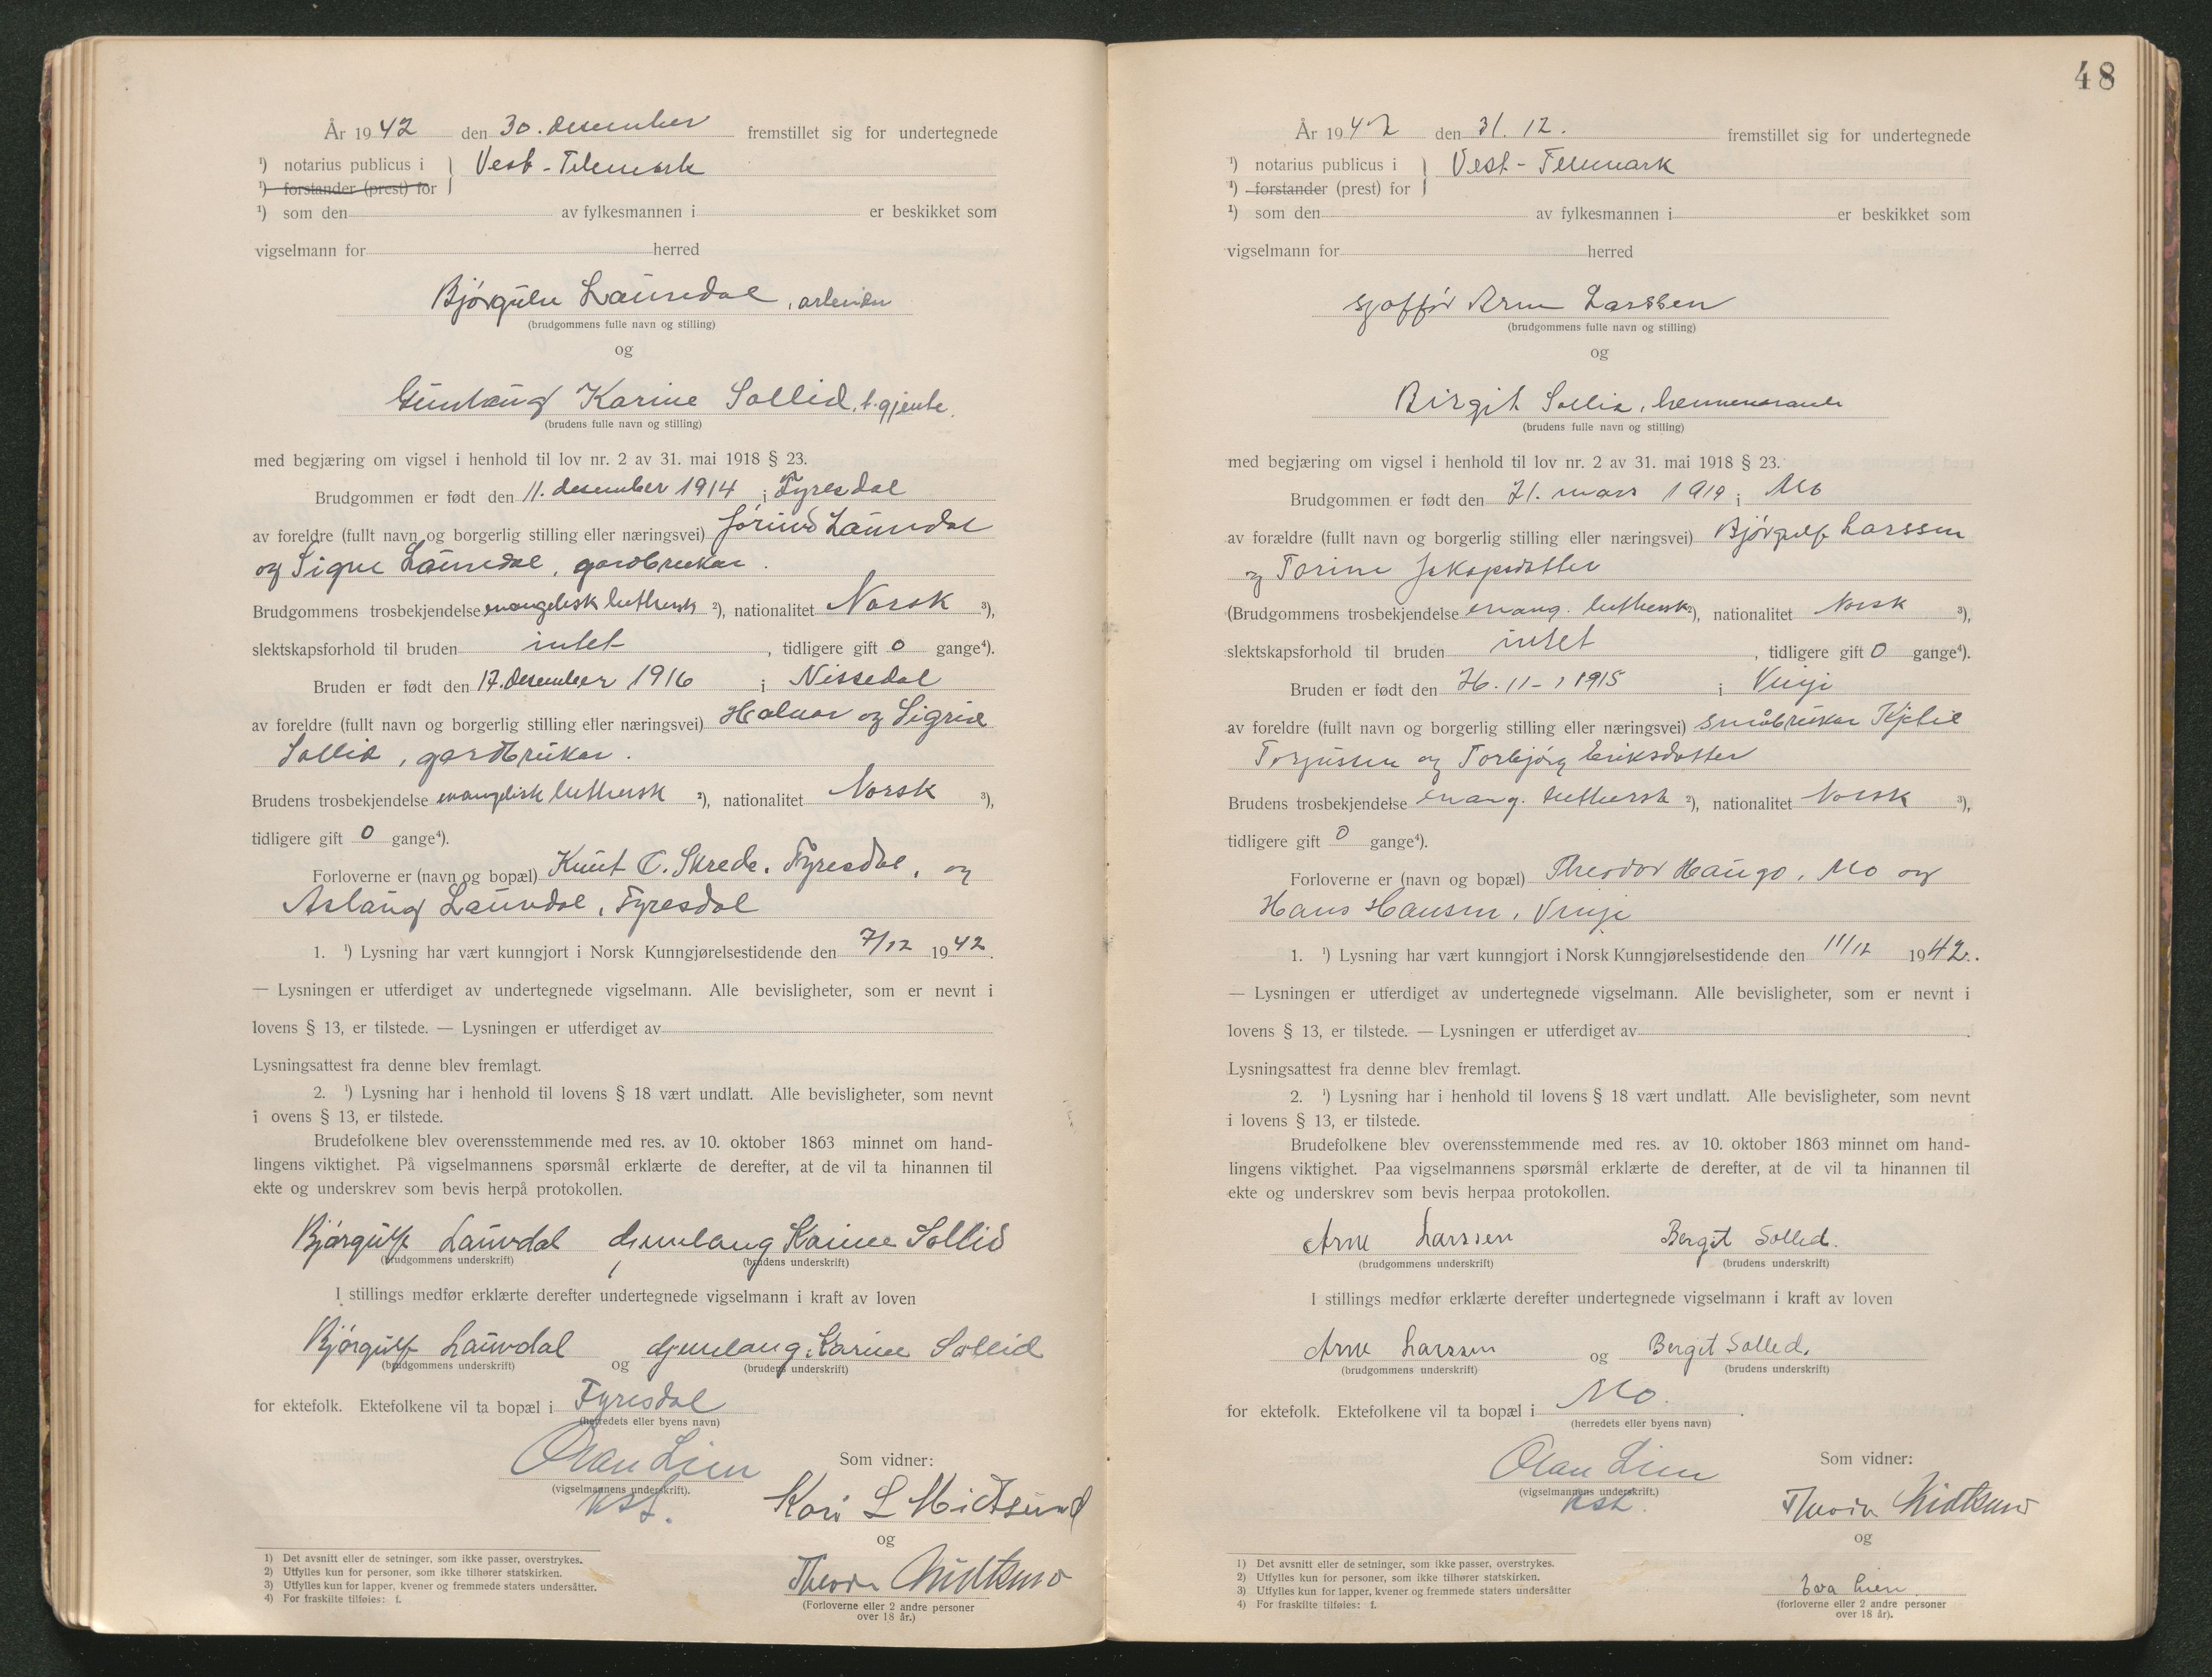 År 1942 den 30. desember fremstillet sig for undertegnede
¹) notarius publicus i } Vest-Telemark
¹) forstander (prest) for
¹) som den av fylkesmannen i er beskikket som
vigselmann for herred
Bjørgulv Lauvdal, arbeider
(brudgommens fulle navn og stilling)
og
Gunlaug Karine Sollid, t.gjente.
(brudens fulle navn og stilling)
med begjæring om vigsel i henhold til lov nr. 2 av 31. mai 1918 § 23.
Brudgommen er født den 11. desember 1914 i Fyresdal
av foreldre (fullt navn og borgerlig stilling eller næringsvei) Jørund Lauvdal
og Signe Lauvdal, gardbruker.
Brudgommens trosbekjendelse evangelisk luthersk ²), nationalitet Norsk ³),
slektskapsforhold til bruden intet, tidligere gift 0 gange⁴).
Bruden er født den 17. desember 1916 i Nissedal
av foreldre (fullt navn og borgerlig stilling eller næringsvei) Halvor og Sigrid
Sollid, gardbruker.
Brudens trosbekjendelse evangelisk luthersk ²), nationalitet Norsk ³),
tidligere gift 0 gange⁴).
Forloverne er (navn og bopæl) Knut O. Skrede, Fyresdal, og
Aslaug Lauvdal, Fyresdal
1. ¹) Lysning har vært kunngjort i Norsk Kunngjørelsestidende den 7/12 1942.
— Lysningen er utferdiget av undertegnede vigselmann. Alle bevisligheter, som er nevnt i
lovens § 13, er tilstede. — Lysningen er utferdiget av
Lysningsattest fra denne blev fremlagt.
2. ¹) Lysning har i henhold til lovens § 18 vært undlatt. Alle bevisligheter, som nevnt
i ovens § 13, er tilstede.
Brudefolkene blev overensstemmende med res. av 10. oktober 1863 minnet om hand-
lingens viktighet. På vigselmannens spørsmål erklærte de derefter, at de vil ta hinannen til
ekte og underskrev som bevis herpå protokollen.
Bjørgulf Lauvdal Gunlaug Karine Sollid
(brudgommens underskrift) (brudens underskrift)
I stillings medfør erklærte derefter undertegnede vigselmann i kraft av loven
Bjørgulf Lauvdal og Gunlaug Karine Sollid
(brudgommens underskrift) (brudens underskrift)
for ektefolk. Ektefolkene vil ta bopæl i Fyresdal
(herredets eller byens navn)
Olav Lien Som vidner:
(vigselmannens underskrift).
kst. Kari L Midtsund
og
Theodor Midtsund
(Forloverne eller 2 andre personer
over 18 år.)
1) Det avsnitt eller de setninger, som ikke passer, overstrykes.
2) Utfylles kun for personer, som ikke tilhører statskirken.
3) Utfylles kun for lapper, kvener og fremmede staters undersåtter.
4) For fraskilte tilføies: f.
48
År 1942 den 31. 12. fremstillet sig for undertegnede
¹) notarius publicus i } Vest-Telemark
¹) forstander (prest) for
¹) som den av fylkesmannen i er beskikket som
vigselmann for herred
sjaffør Arne Larssen
(brudgommens fulle navn og stilling)
og
Birgit Sollid, heimeverande
(brudens fulle navn og stilling)
med begjæring om vigsel i henhold til lov nr. 2 av 31. mai 1918 § 23.
Brudgommen er født den 21. mars 1919 i Mo
av forældre (fullt navn og borgerlig stilling eller næringsvei) Bjørgulf Larssen
og Torine Jakopsdatter
(Brudgommens trosbekjendelse evang. luthersk ²), nationalitet Norsk ³),
slektskapsforhold til bruden intet, tidligere gift 0 gange⁴).
Bruden er født den 26. 11 - 1915 i Vinje
av foreldre (fullt navn og borgerlig stilling eller næringsvei) småbruker Kjetil
Torjussen og Torbjørg Eriksdatter
Brudens trosbekjendelse evang. luthersk ²), nationalitet Norsk ³),
tidligere gift 0 gange⁴).
Forloverne er (navn og bopæl) Theodor Haugo, Mo og
Hans Hansen, Vinje
1. ¹) Lysning har vært kunngjort i Norsk Kunngjørelsestidende den 11/12 1942.
— Lysningen er utferdiget av undertegnede vigselmann. Alle bevisligheter, som er nevnt i
lovens § 13, er tilstede. — Lysningen er utferdiget av
Lysningsattest fra denne blev fremlagt.
2. ¹) Lysning har i henhold til lovens § 18 vært undlatt. Alle bevisligheter, som nevnt
i lovens § 13, er tilstede.
Brudefolkene blev overensstemmende med res. av 10. oktober 1863 minnet om hand-
lingens viktighet. Paa vigselmannens spørsmål erklærte de derefter, at de vil ta hinannen til
ekte og underskrev som bevis herpaa protokollen.
Arne Larssen Bergit Sollid.
(brudgommens underskrift) (brudens underskrift)
I stillings medfør erklærte derefter undertegnede vigselmann i kraft av loven
Arne Larssen og Bergit Sollid.
(brudgommens underskrift) (brudens underskrift)
for ektefolk. Ektefolkene vil ta bopæl i Mo.
(herredets eller byens navn)
Olav Lien Som vidner:
(vigselmannens underskrift.)
kst. Theodor Midtsund
og
Eva Lien.
(forloverne eller 2 andre personer
over 18 år).
1) Det avsnitt eller de setninger, som ikke passer, overstrykes.
2) Utfylles kun for personer, som ikke tilhører statskirken.
3) Utfylles kun for lapper, kvener og fremmede staters undersåtter
4) For fraskilte tilføies: f.